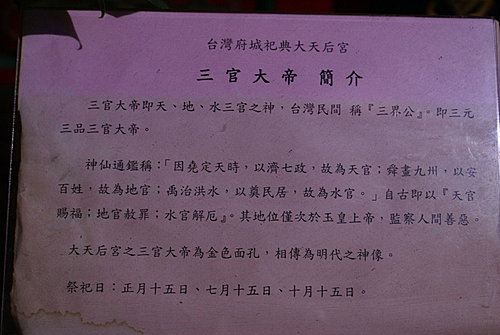 台灣府城祀典大天后宮
三官大帝 簡介
三官大帝即天、地、水三官之神，台灣民間 稱『三界公』。即三元
三品三官大帝。
神仙通鑑稱：「因堯定天時，以濟七政，故為天官；舜畫九州，以安
百姓，故為地官；禹治洪水，以奠民居，故為水官。」自古即以『天官
賜福；地官赦罪；水官解厄』。其地位僅次於玉皇上帝，監察人間善惡。
大天后宮之三官大帝為金色面孔，相傳為明代之神像。
祭祀日：正月十五日、七月十五日、十月十五日。